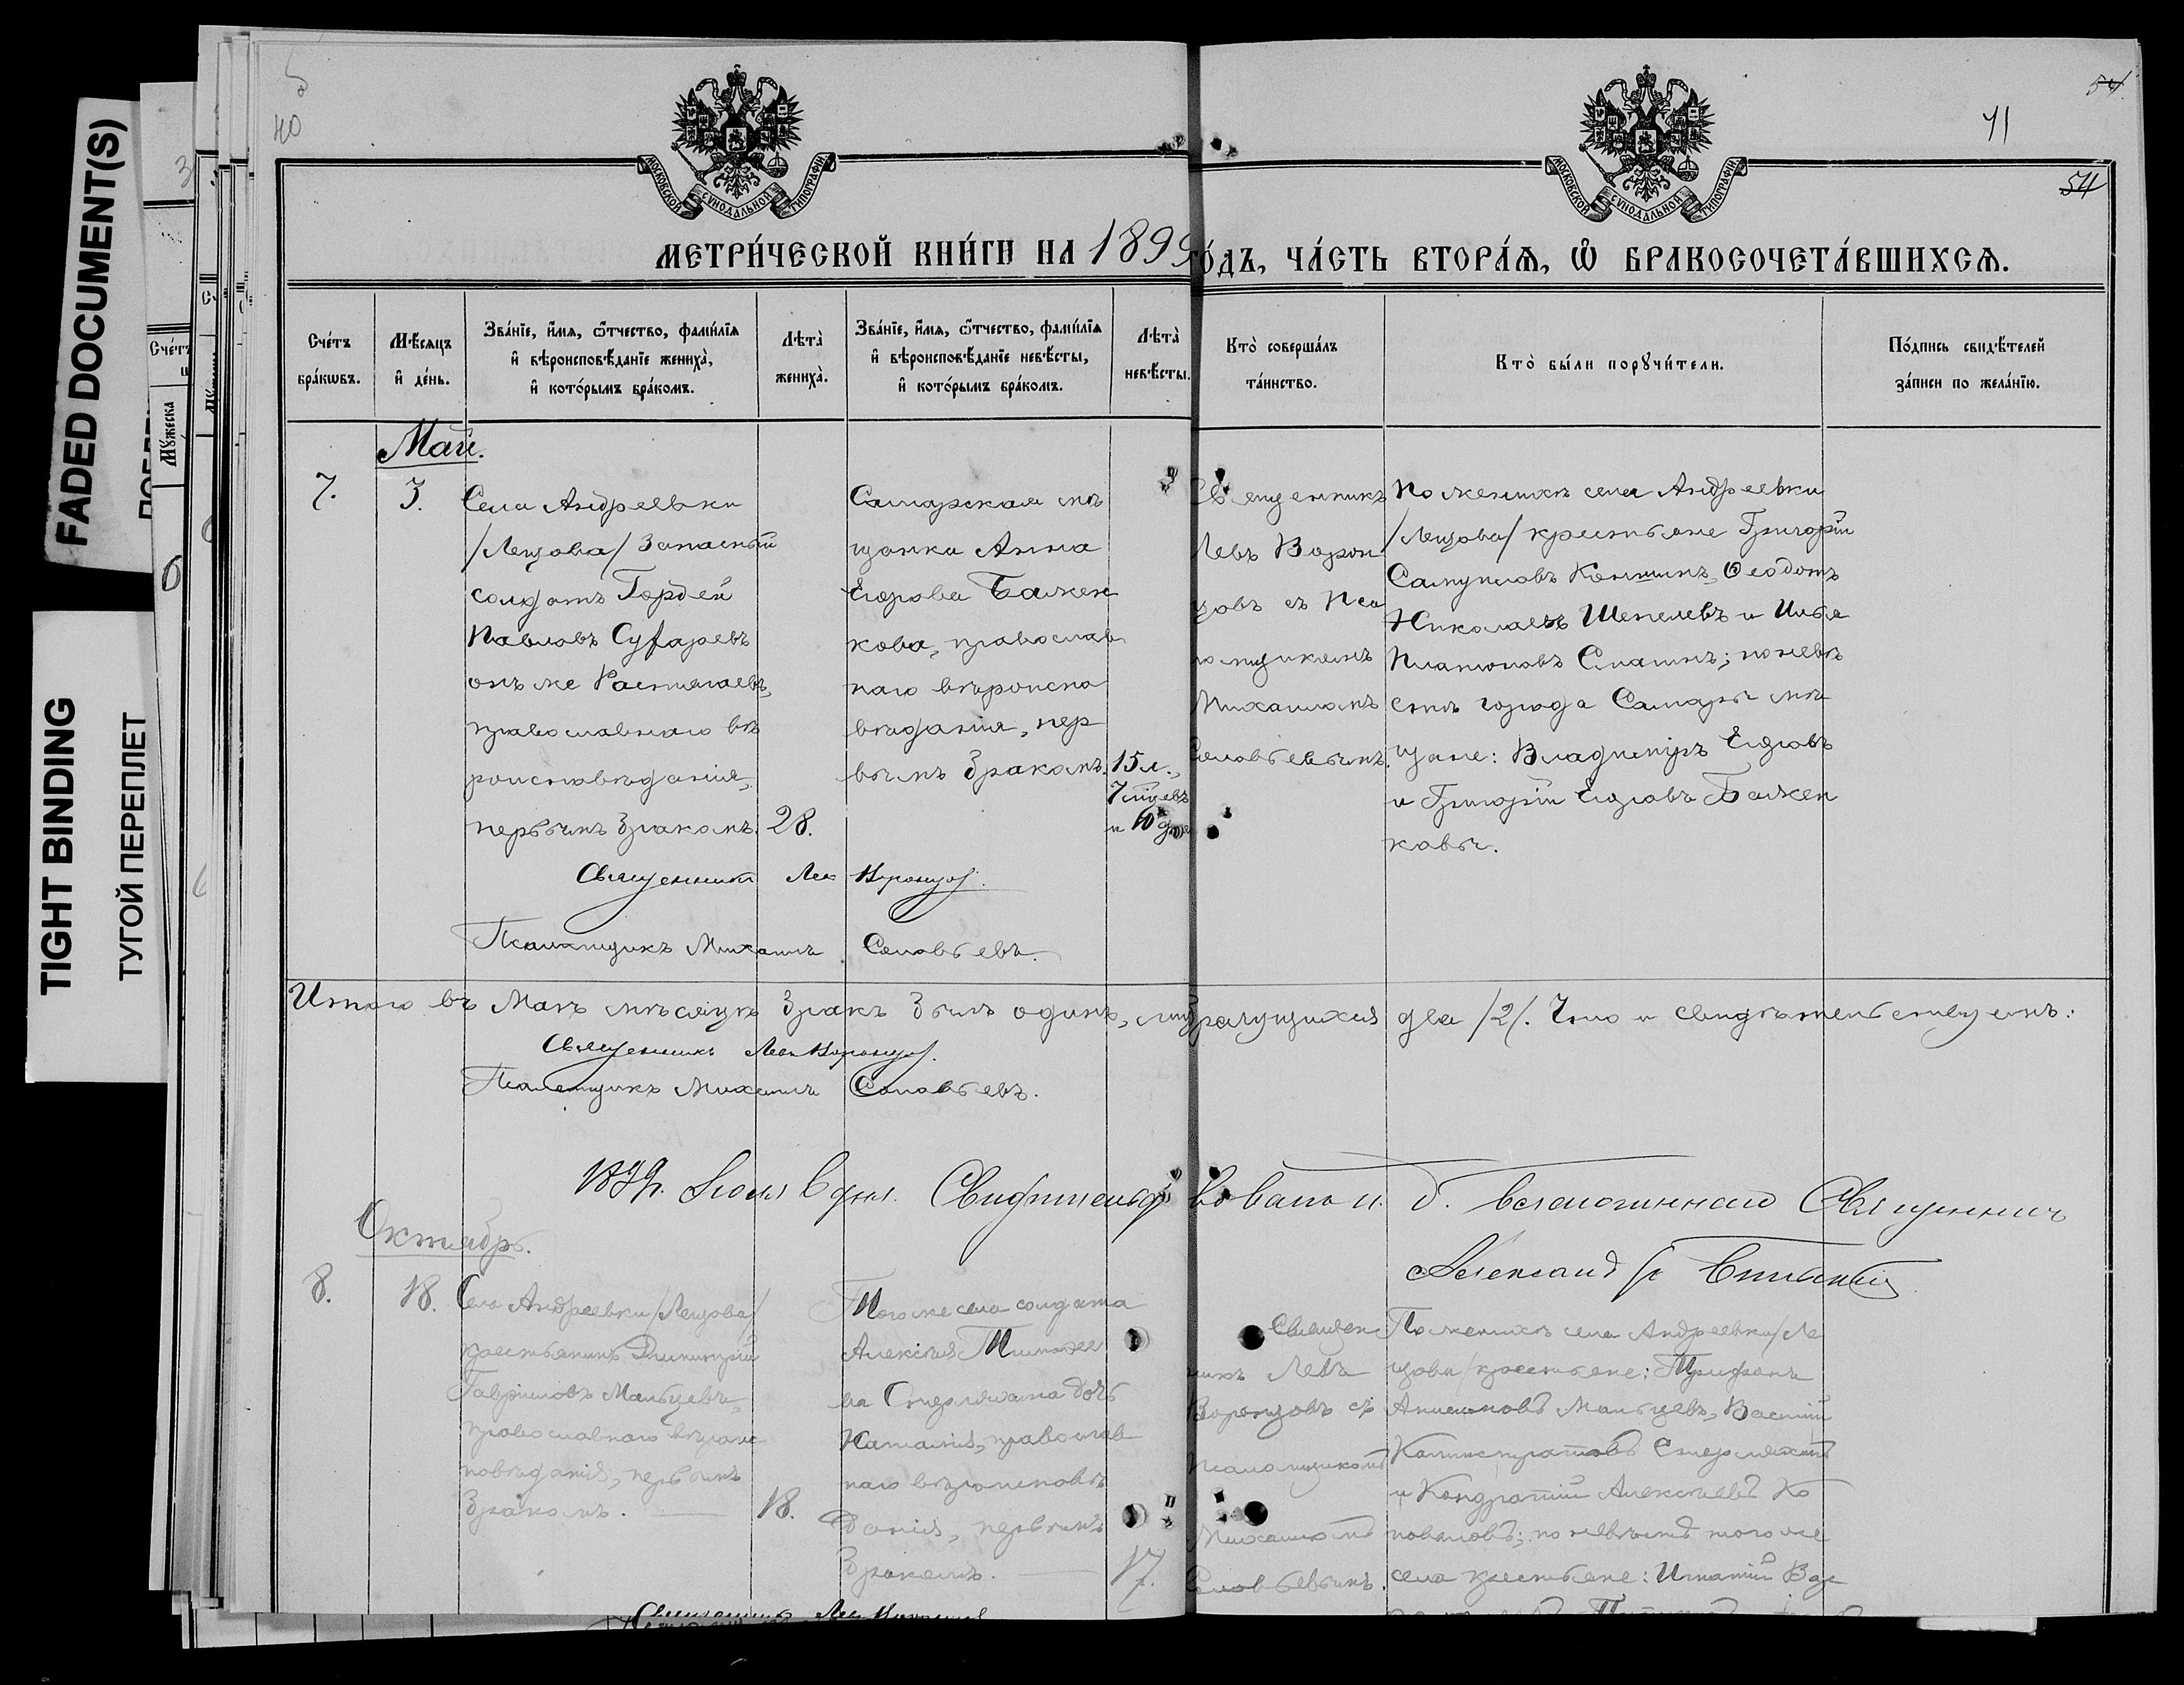 FADED DOCUMENT(S)
TIGHT BINDING
ТУГОЙ ПЕРЕПЛЕТ
40
41
54
54
МОСКОВСКОЙ СѴНОДАЛЬНОЙ ТИПОГРАФІИ
МОСКОВСКОЙ СѴНОДАЛЬНОЙ ТИПОГРАФІИ
МЕТРИ́ЧЕСКОЙ КНИ́ГИ НА 1899 ГО́ДЪ, ЧА́СТЬ ВТОРА́Ѧ, Ѽ БРАКОСОЧЕТА́ВШИХСѦ.
Сче́тъ
бра́кѡвъ.
Мѣ́сяцъ
и҆ де́нь.
Зва́нїе, и҆́мѧ, ѻ҆́тчество, фами́лїѧ
и҆ вѣроисповѣ́данїе жениха̀,
и҆ кото́рымъ бра́комъ.
Лѣта̀
жениха̀.
Зва́нїе, и҆́мѧ, ѻ҆́тчество, фами́лїѧ
и҆ вѣроисповѣ́данїе невѣ́сты,
и҆ кото́рымъ бра́комъ.
Лѣта̀
невѣ́сты.
Кто̀ соверша́лъ
та́инство.
Кто̀ бы́ли порꙋчи́тели.
По́дпись свидѣ́телей
за́писи по жела́нїю.
Май.
7.
3.
Села Андреевки
/Лещова/ Запасный
солдатъ Гордѣй
Павловъ Суфаревъ
онъ же Растягаевъ,
православнаго вѣ
роисповѣданія,
первымъ бракомъ.
28.
Самарская мѣ
щанка Анна
Егорова Бажен
кова, православ
наго вѣроиспо
вѣданія, пер
вымъ бракомъ.
15 л.,
7 мцевъ
и 10 дне
Священникъ
Левъ Ворон
цовъ съ Пса
ломщикомъ
Михаиломъ
Соловьевымъ.
По женихѣ села Андреевки
/Лещова/ крестьяне Григорій
Самуиловъ Коншинъ, Ѳеодотъ
Николаевъ Шепелевъ и Илья
Платоновъ Спашнъ; по невѣ
стѣ города Самары мѣ
щане: Владиміръ Егоровъ
и Григорій Егоровъ Бажен
ковы.
Священникъ Левъ Воронцов.
Псаломщикъ Михаилъ Соловьевъ.
Итого въ Маѣ мѣсяцѣ бракъ былъ одинъ, а бравшихся два /2/. Что и свидѣтельствуемъ:
Священникъ Левъ Воронцов.
Псаломщикъ Михаилъ Соловьевъ.
1899. Іюля 6 дня. Свидѣтельствовалъ и. д. благочиннаго Священникъ
Александръ
Октябрь.
8.
18.
Села Андреевки /Лещова/
крестьянинъ Димитрій
Гавріиловъ Мальцевъ,
православнаго вѣроис
повѣданія, первымъ
бракомъ.
18.
Того же села солдата
Алексѣя Тимоѳее
ва Стерляхина дочь
Наталія, православ
наго вѣроисповѣ
данія, первымъ
бракомъ.
17.
Священ
никъ Левъ
Воронцовъ съ
Псаломщикомъ
Михаиломъ
Соловьевымъ.
По женихѣ села Андреевки /Ле
щова/ крестьяне: Трифонъ
Анисимовъ Мальцевъ, Василій
Каллистратовъ Стерляхинъ
и Кондратій Алексѣевъ Ко
новаловъ; по невѣстѣ того же
села крестьяне: Игнатій Вас